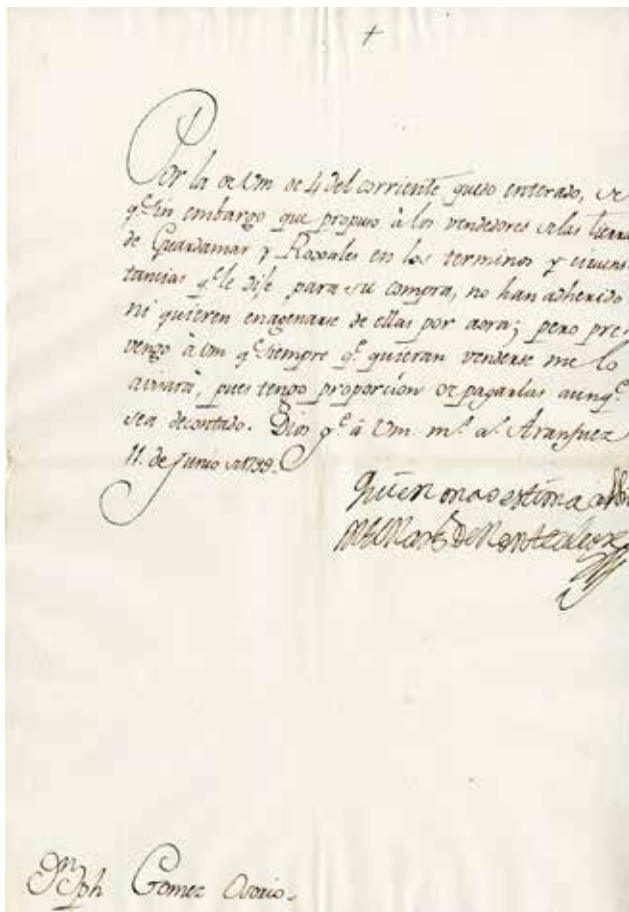 Por la de Vm de 4 del corriente quedo enterado, de
q.e sin embargo que propuso à los vendedores de las tierras
de Guardamar y Roxales en los terminos y circuns
tancias q.e le dije para su compra, no han adherido
ni quieren enagenarse de ellas por aora; pero pre
vengo à Vm q.e siempre q.e quieran venderse me lo
avisarà, pues tengo proporcion de pagarlas aunq.e
sea decontado. Dios g.e à Vm. m.s a.s Aranjuez
11. de Junio de
Quien mas estima a Vm
D.n Jph Gomez Osorio.